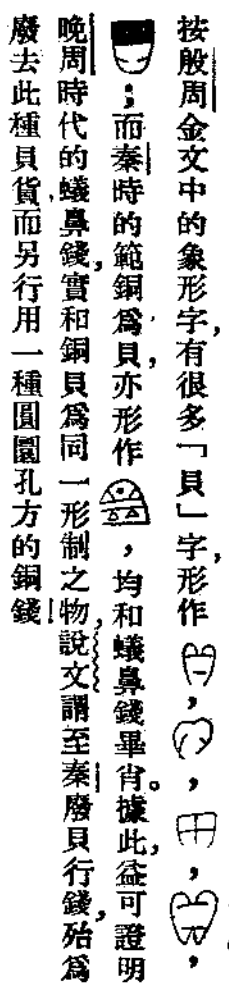 按殷周金文中的象形字,有很多「貝」字,形作,,,,
;而秦時的範銅爲貝,亦形作,均和蟻鼻錢畢肖。據此,益可證明
晚周時代的蟻鼻錢,實和銅貝爲同一形制之物,說文謂至秦廢貝行錢,殆爲
廢去此種貝貨,而另行用一種圓圜孔方的銅錢!